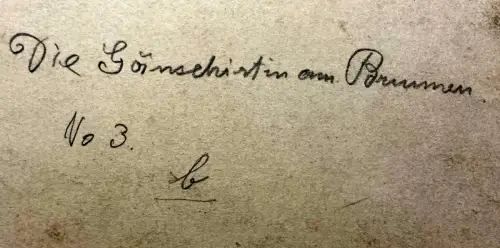 Die Gänsehirtin am Brunnen.
No 3.
b